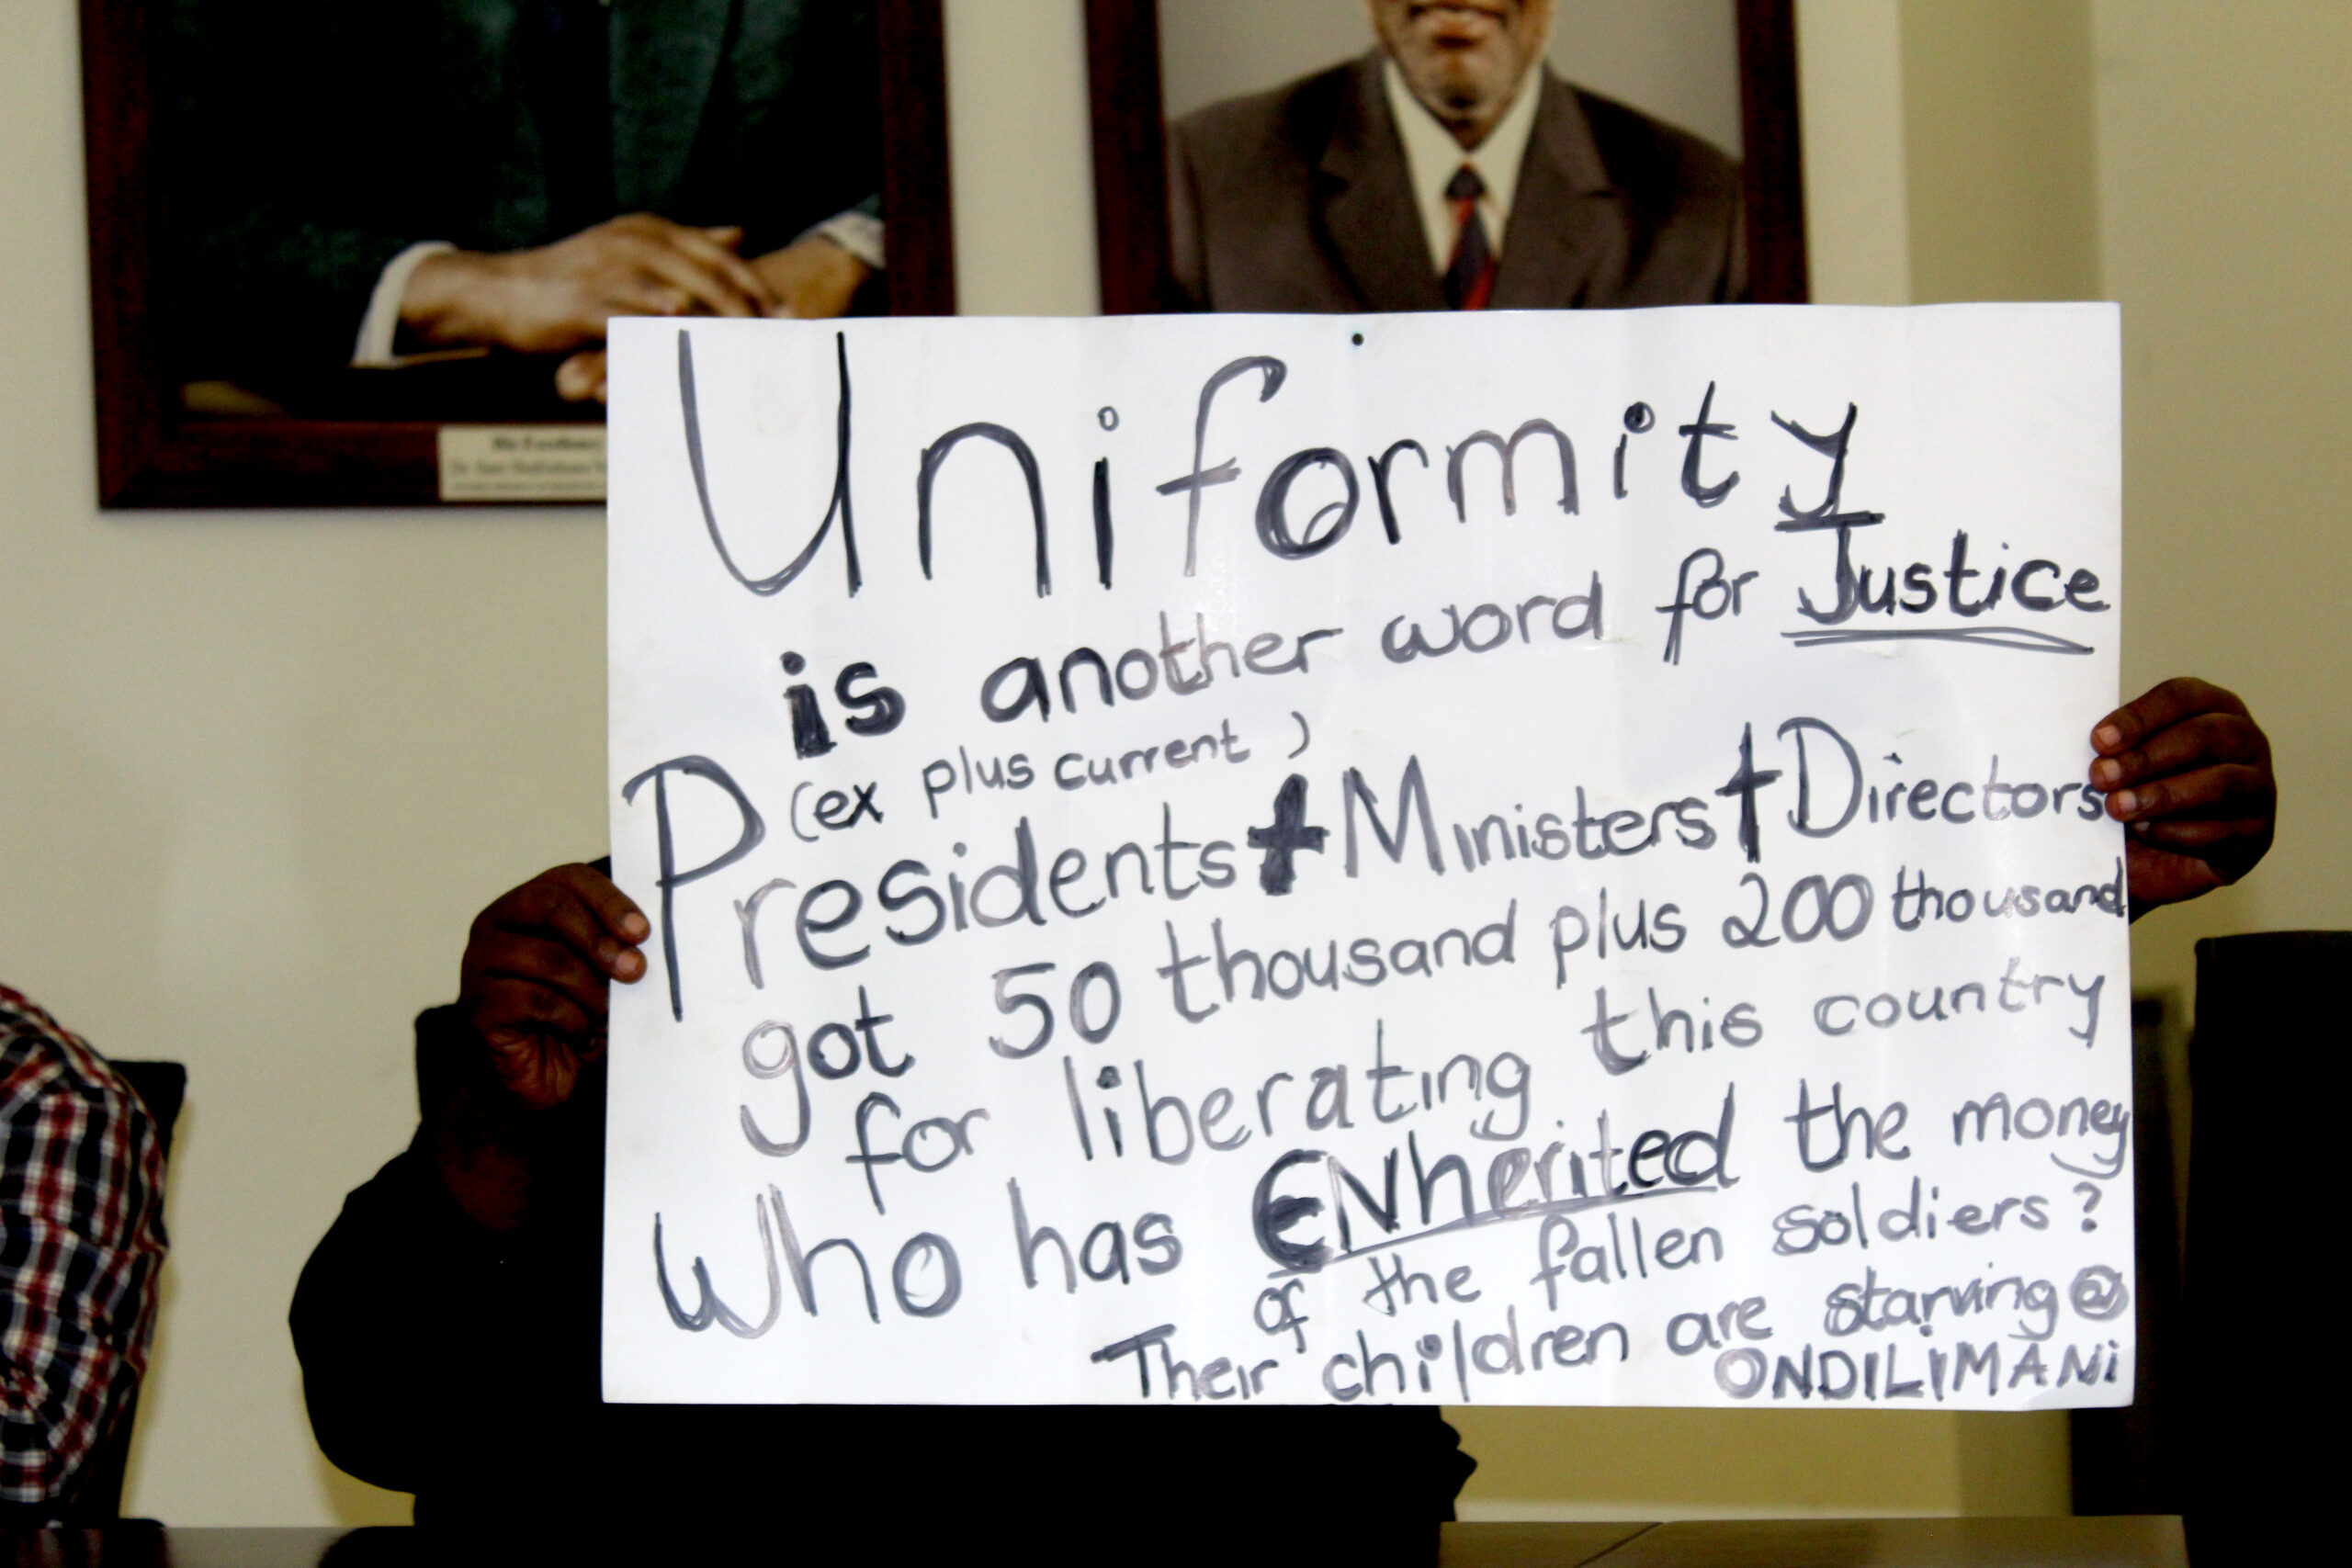 His Excellency
Uniformity
is another word for Justice
(ex plus current)
Presidents + Ministers + Directors
got 50 thousand plus 200 thousand
for liberating this country
Who has ENherited the money
of the fallen soldiers?
Their children are starving @
ONDILIMANi